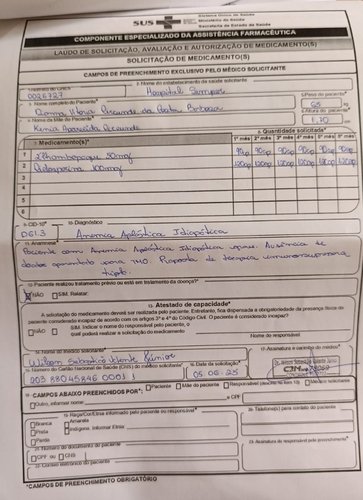 SUS
Sistema Único de Saúde
Ministério da Saúde
Secretaria de Estado da Saúde
COMPONENTE ESPECIALIZADO DA ASSISTÊNCIA FARMACÊUTICA
LAUDO DE SOLICITAÇÃO, AVALIAÇÃO E AUTORIZAÇÃO DE MEDICAMENTO(S)
SOLICITAÇÃO DE MEDICAMENTO(S)
CAMPOS DE PREENCHIMENTO EXCLUSIVO PELO MÉDICO SOLICITANTE
1-Número do CNES* 2- Nome do estabelecimento de saúde solicitante
0026727 Hospital
3- Nome completo do Paciente* 5-Peso do paciente*
65 kg
4- Nome da Mãe do Paciente* 6-Altura do paciente*
Kenia Aparecida 1,70
7- Medicamento(s)* 8- Quantidade solicitada*
1º mês 2º mês 3º mês 4º mês 5º mês 6º mês
1 Eltrombopague 50mg 90cp 90cp 90cp 90cp
2 Ciclosporina 100mg 120cp 120cp 120cp 120cp
3
4
5
9-CID-10* 10- Diagnóstico
D61.3 Anemia Aplástica Idiopática
11- Anamnese*
Paciente com Anemia Aplástica Idiopática Ausência de
doador aparentado para TMO. Proposta de terapia imunossupressora
tripla.
12- Paciente realizou tratamento prévio ou está em tratamento da doença?*
NÃO SIM. Relatar:
13- Atestado de capacidade*
A solicitação do medicamento deverá ser realizada pelo paciente. Entretanto, fica dispensada a obrigatoriedade da presença física do
paciente considerado incapaz de acordo com os artigos 3º e 4º do Código Civil. O paciente é considerado incapaz?
NÃO SIM. Indicar o nome do responsável pelo paciente, o
qual poderá realizar a solicitação do medicamento
Nome do responsável
14- Nome do médico solicitante* 17- Assinatura e carimbo do médico*
Wilson Sebastião Júnior
15- Número do Cartão Nacional de Saúde (CNS) do médico solicitante* 16- Data da solicitação*
05.06.25
18- CAMPOS ABAIXO PREENCHIDOS POR*: Paciente Mãe do paciente Responsável (descrito no item 13) Médico solicitante
Outro, informar nome: e CPF
19- Raça/Cor/Etnia informado pelo paciente ou responsável* 20- Telefone(s) para contato do paciente
Branca Amarela
Preta Indígena. Informar Etnia:
Parda
21- Número do documento do paciente 23- Assinatura do responsável pelo preenchimento*
CPF ou CNS
22- Correio eletrônico do paciente
*CAMPOS DE PREENCHIMENTO OBRIGATÓRIO